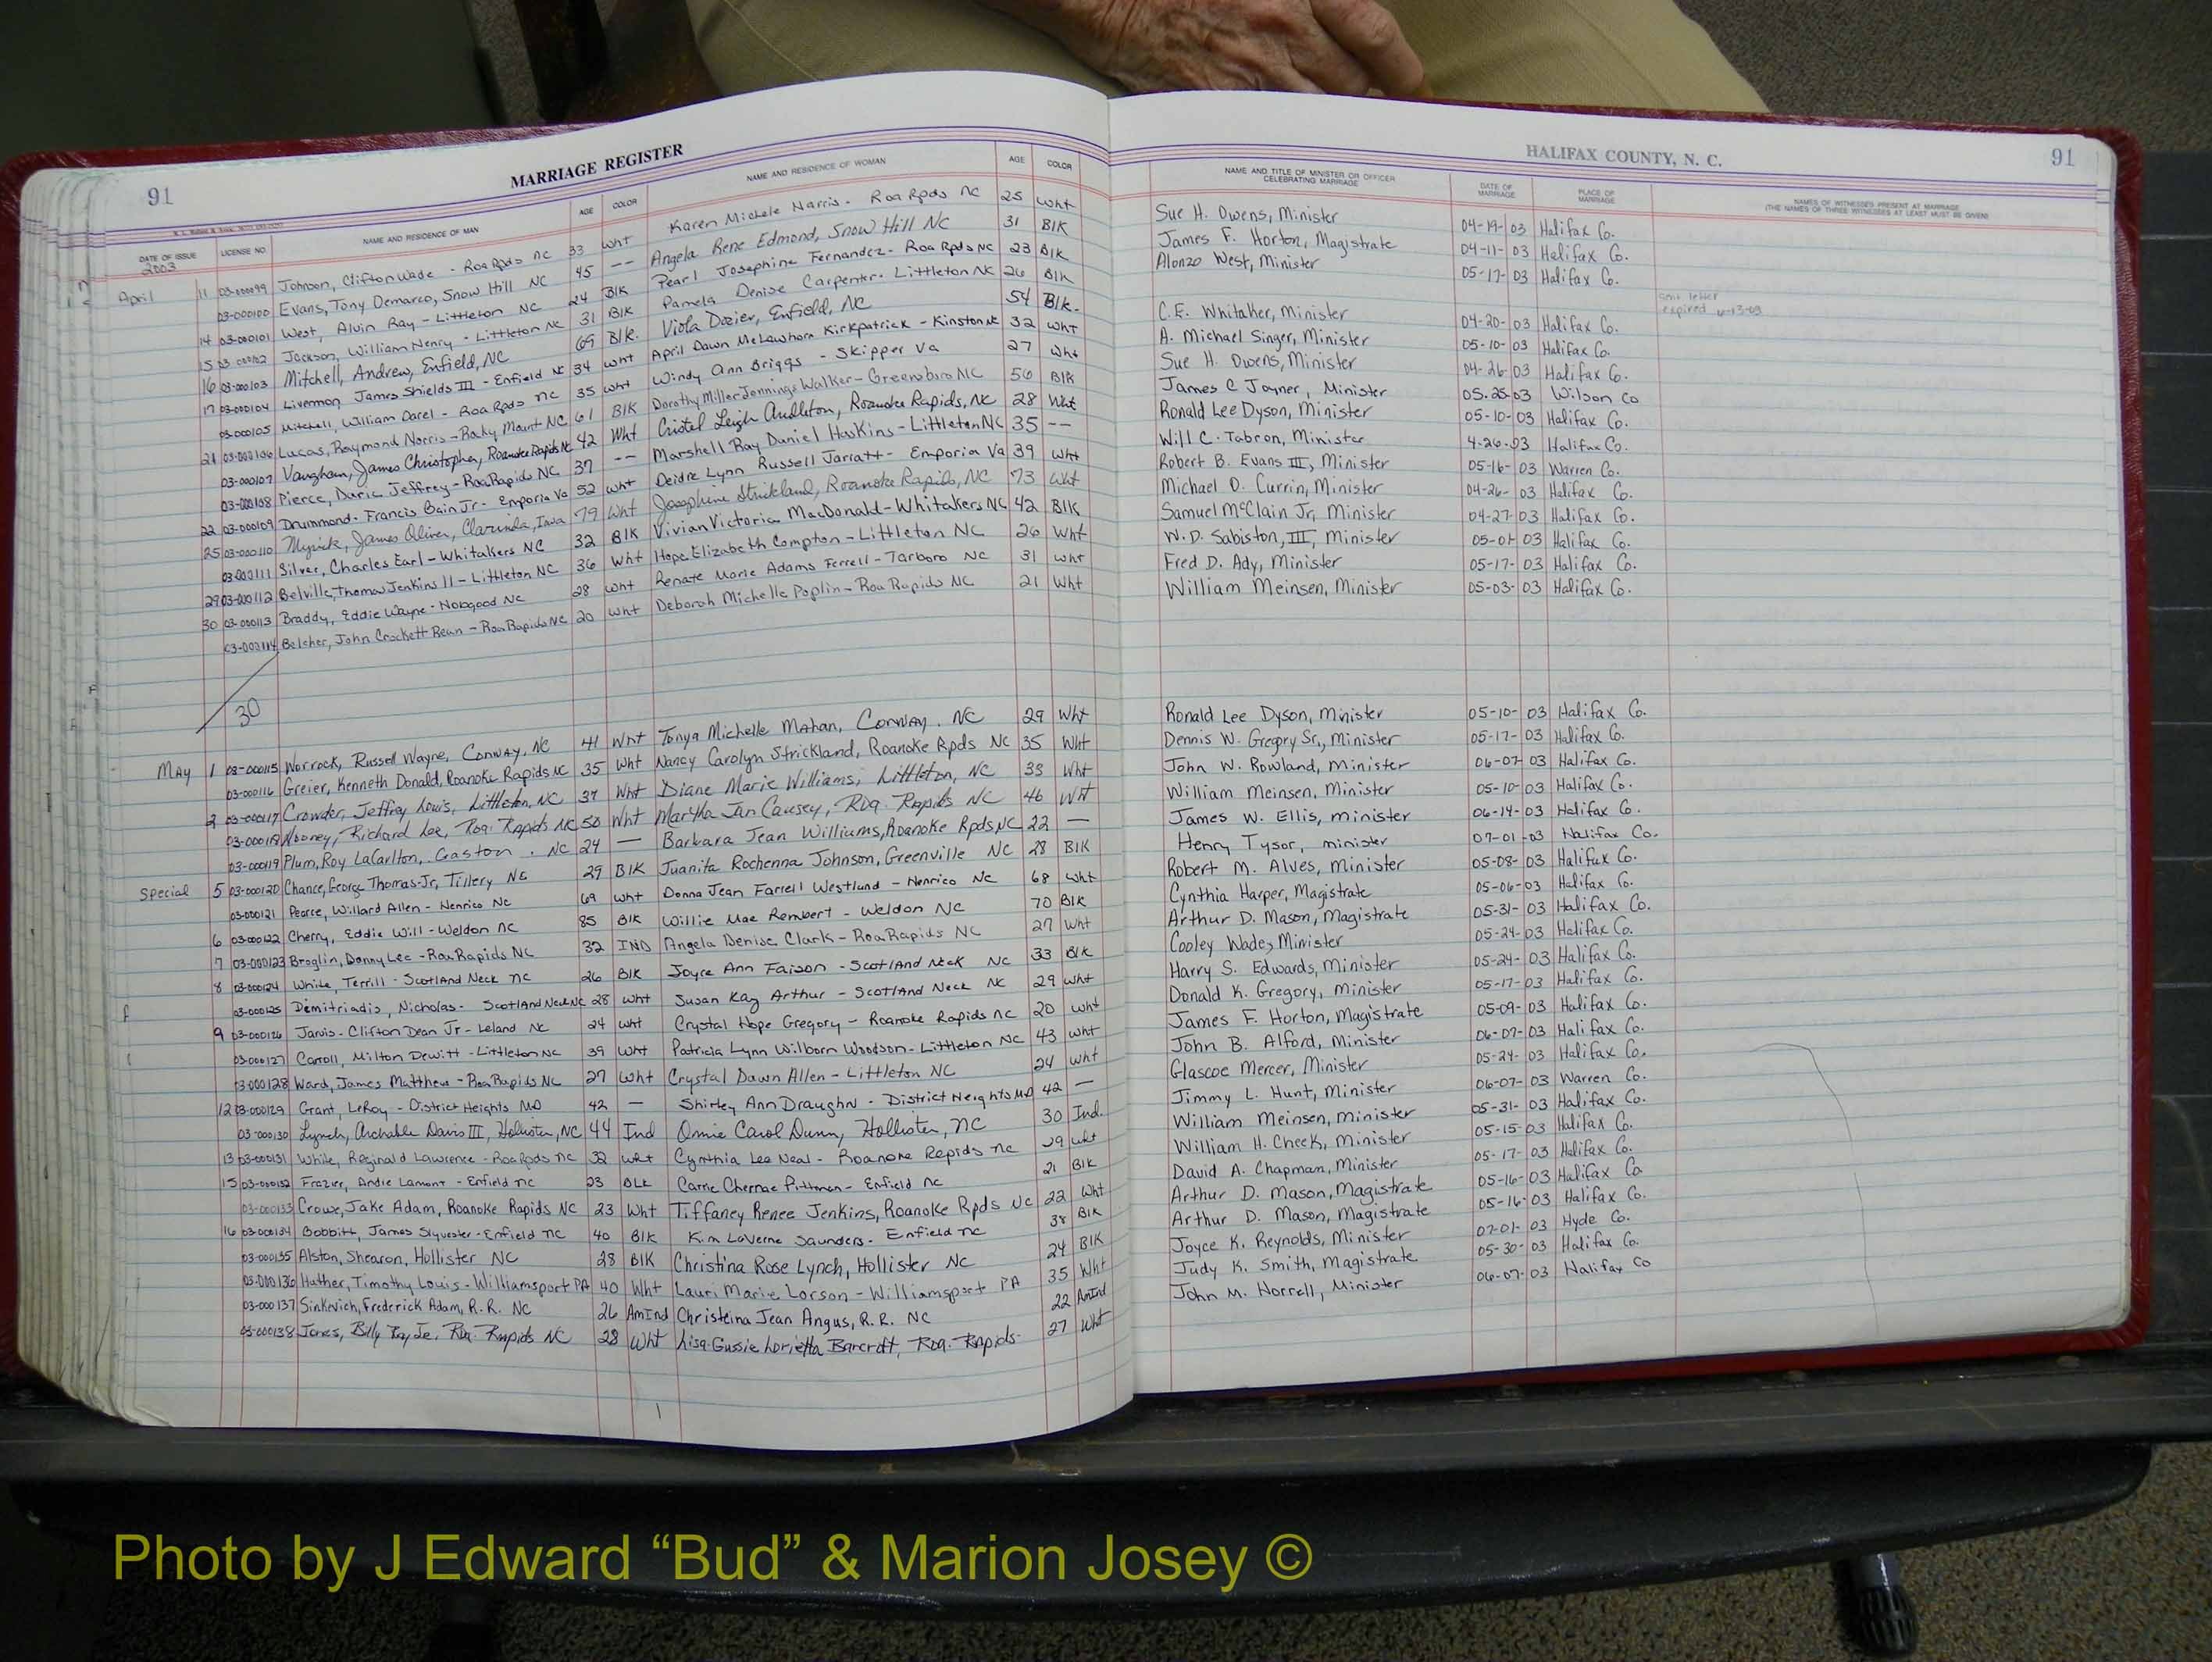 91
MARRIAGE REGISTER
DATE OF ISSUE LICENSE NO. NAME AND RESIDENCE OF MAN AGE COLOR NAME AND RESIDENCE OF WOMAN AGE COLOR
2003
April 11 03-000099 Johnson, Clifton Wade - Roa Rpds NC 33 Wht Karen Michele Harris - Roa Rpds NC 25 Wht
03-000100 Evans, Tony Demarco, Snow Hill NC 45 -- Angela Rene Edmond, Snow Hill NC 31 Blk
14 03-000101 West, Alvin Ray - Littleton NC 24 Blk Pearl Josephine Fernandez - Roa Rpds NC 23 Blk
15 03-000102 Jackson, William Henry - Littleton NC 31 Blk Pamela Denise Carpenter - Littleton NC 26 Blk
16 03-000103 Mitchell, Andrew, Enfield, NC 69 Blk. Viola Dozier, Enfield, NC 54 Blk.
17 03-000104 Livermon, James Shields III - Enfield NC 34 Wht April Dawn McLawhorn Kirkpatrick - Kinston NC 32 Wht
03-000105 Mitchell, William Darel - Roa Rpds NC 35 Wht Windy Ann Briggs - Skipper Va 27 Wht
21 03-000106 Lucas, Raymond Norris - Rocky Mount NC 61 Blk Dorothy Miller Jennings Walker - Greensboro NC 56 Blk
03-000107 Vaughan, James Christopher, Roanoke Rapids NC 42 Wht Cristel Leigh Audleton, Roanoke Rapids, NC 28 Wht
03-000108 Pierce, Daric Jeffrey - Roa Rapids NC 37 -- Marshell Ray Daniel Haskins - Littleton NC 35 --
22 03-000109 Drummond - Francis Bain Jr - Emporia Va 52 Wht Deidre Lynn Russell Jarratt - Emporia Va 39 Wht
25 03-000110 Myrick, James Oliver, Clarinda, Iowa 79 Wht Josephine Strickland, Roanoke Rapids, NC 73 Wht
03-000111 Silver, Charles Earl - Whitakers NC 32 Blk Vivian Victoria MacDonald - Whitakers NC 42 Blk
29 03-000112 Belville, Thomas Jenkins II - Littleton NC 36 Wht Hope Elizabeth Compton - Littleton NC 26 Wht
30 03-000113 Braddy, Eddie Wayne - Hobgood NC 28 Wht Renate Marie Adams Ferrell - Tarboro NC 31 Wht
03-000114 Belcher, John Crockett Bean - Roa Rapids NC 20 Wht Deborah Michelle Poplin - Roa Rapids NC 21 Wht
30
May 1 03-000115 Worrock, Russell Wayne, Conway, NC 41 Wht Tonya Michelle Mahan, Conway, NC 29 Wht
03-000116 Greier, Kenneth Donald, Roanoke Rapids NC 35 Wht Nancy Carolyn Strickland, Roanoke Rpds NC 35 Wht
2 03-000117 Crowder, Jeffrey Louis, Littleton, NC 37 Wht Diane Marie Williams, Littleton, NC 33 Wht
03-000118 Mooney, Richard Lee, Roa. Rapids NC 50 Wht Martha Jan Causey, Roa. Rapids NC 46 Wht
03-000119 Plum, Roy LaCarlton, Gaston, NC 24 — Barbara Jean Williams, Roanoke Rpds NC 22 —
Special 5 03-000120 Chance, George Thomas Jr, Tillery NC 29 Blk Juanita Rochenna Johnson, Greenville NC 28 Blk
03-000121 Pearce, Willard Allen - Henrico NC 69 Wht Donna Jean Farrell Westlund - Henrico NC 68 Wht
6 03-000122 Cherry, Eddie Will - Weldon NC 85 Blk Willie Mae Rembert - Weldon NC 70 Blk
7 03-000123 Broglin, Danny Lee - Roa Rapids NC 32 IND Angela Denise Clark - Roa Rapids NC 27 Wht
8 03-000124 White, Terrill - Scotland Neck NC 26 Blk Joyce Ann Faison - Scotland Neck NC 33 Blk
03-000125 Demitriadis, Nicholas - Scotland Neck NC 28 Wht Susan Kay Arthur - Scotland Neck NC 29 Wht
9 03-000126 Jarvis - Clifton Dean Jr - Leland NC 24 Wht Crystal Hope Gregory - Roanoke Rapids NC 20 Wht
03-000127 Carroll, Milton Dewitt - Littleton NC 39 Wht Patricia Lynn Wilborn Woodson - Littleton NC 43 Wht
03-000128 Ward, James Matthew - Roa Rapids NC 27 Wht Crystal Dawn Allen - Littleton NC 24 Wht
12 03-000129 Grant, LeRoy - District Heights MD 42 — Shirley Ann Draughn - District Heights MD 42 —
03-000130 Lynch, Archable Davis III, Hollister, NC 44 Ind Onnie Carol Dunn, Hollister, NC 30 Ind.
13 03-000131 White, Reginald Lawrence - Roa Rpds NC 32 Wht Cynthia Lee Neal - Roanoke Rapids NC 29 Wht
15 03-000132 Frazier, Andre Lamont - Enfield NC 23 Blk Carrie Chernae Pittman - Enfield NC 21 Blk
03-000133 Crowe, Jake Adam, Roanoke Rapids NC 23 Wht Tiffaney Renee Jenkins, Roanoke Rpds NC 22 Wht
16 03-000134 Bobbitt, James Slyvester - Enfield NC 40 Blk Kim LaVerne Saunders - Enfield NC 38 Blk
03-000135 Alston, Shearon, Hollister NC 28 Blk Christina Rose Lynch, Hollister NC 24 Blk
03-000136 Huther, Timothy Louis - Williamsport PA 40 Wht Lauri Marie Lorson - Williamsport PA 35 Wht
03-000137 Sinkevich, Frederick Adam, R.R. NC 26 AmInd Christeina Jean Angus, R.R. NC 22 AmInd
03-000138 Jones, Billy Ray Jr. Roa. Rapids NC 28 Wht Lisa Gussie Lorietta Barcroft, Roa. Rapids 27 Wht
HALIFAX COUNTY, N. C.
91
NAME AND TITLE OF MINISTER OR OFFICER CELEBRATING MARRIAGE DATE OF MARRIAGE PLACE OF MARRIAGE NAMES OF WITNESSES PRESENT AT MARRIAGE
(THE NAMES OF THREE WITNESSES AT LEAST MUST BE GIVEN)
Sue H. Owens, Minister 04-19-03 Halifax Co.
James F. Horton, Magistrate 04-11-03 Halifax Co.
Alonzo West, Minister 05-17-03 Halifax Co.
sent letter
expired 6-13-03
C.E. Whitaker, Minister 04-20-03 Halifax Co.
A. Michael Singer, Minister 05-10-03 Halifax Co.
Sue H. Owens, Minister 04-26-03 Halifax Co.
James C Joyner, Minister 05-25-03 Wilson Co
Ronald Lee Dyson, Minister 05-10-03 Halifax Co.
Will C. Tabron, Minister 4-26-03 Halifax Co.
Robert B. Evans III, Minister 05-16-03 Warren Co.
Michael D. Currin, Minister 04-26-03 Halifax Co.
Samuel McClain Jr, Minister 04-27-03 Halifax Co.
W.D. Sabiston, III, Minister 05-01-03 Halifax Co.
Fred D. Ady, Minister 05-17-03 Halifax Co.
William Meinsen, Minister 05-03-03 Halifax Co.
Ronald Lee Dyson, Minister 05-10-03 Halifax Co.
Dennis W. Gregory Sr., Minister 05-17-03 Halifax Co.
John W. Rowland, Minister 06-07-03 Halifax Co.
William Meinsen, Minister 05-10-03 Halifax Co.
James W. Ellis, minister 06-14-03 Halifax Co.
Henry Tysor, minister 07-01-03 Halifax Co.
Robert M. Alves, minister 05-08-03 Halifax Co.
Cynthia Harper, Magistrate 05-06-03 Halifax Co.
Arthur D. Mason, Magistrate 05-31-03 Halifax Co.
Cooley Wade, Minister 05-24-03 Halifax Co.
Harry S. Edwards, Minister 05-24-03 Halifax Co.
Donald K. Gregory, Minister 05-17-03 Halifax Co.
James F. Horton, Magistrate 05-09-03 Halifax Co.
John B. Alford, Minister 06-07-03 Halifax Co.
Glascoe Mercer, Minister 05-24-03 Halifax Co.
Jimmy L. Hunt, Minister 06-07-03 Warren Co.
William Meinsen, Minister 05-31-03 Halifax Co.
William H. Cheek, Minister 05-15-03 Halifax Co.
David A. Chapman, Minister 05-17-03 Halifax Co.
Arthur D. Mason, Magistrate 05-16-03 Halifax Co
Arthur D. Mason, Magistrate 05-16-03 Halifax Co.
Joyce K. Reynolds, Minister 07-01-03 Hyde Co.
Judy K. Smith, Magistrate 05-30-03 Halifax Co.
John M. Horrell, Minister 06-07-03 Halifax Co
Photo by J Edward “Bud” & Marion Josey ©